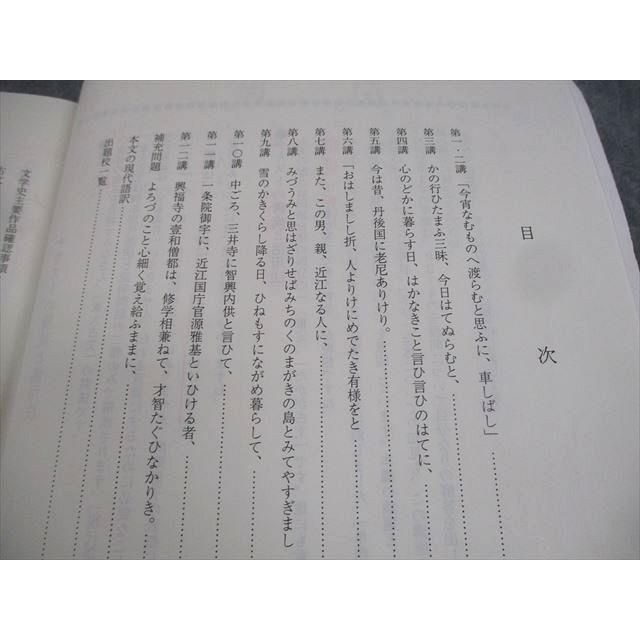 目 次
第一・二講 「今宵なむものへ渡らむと思ふに、車しばし」
第三講 かの行ひたまふ三昧、今日はてぬらむと、
第四講 心のどかに暮らす日、はかなきこと言ひ言ひのはてに、
第五講 今は昔、丹後国に老尼ありけり。
第六講 「おはしましし折、人よりけにめでたき有様をと
第七講 また、この男、親、近江なる人に、
第八講 みづうみと思はざりせばみちのくのまがきの島とみてやすぎまし
第九講 雪のかきくらし降る日、ひねもすにながめ暮らして、
第一〇講 中ごろ、三井寺に智興内供と言ひて、
第一一講 一条院御宇に、近江国庁官源雅基といひける者、
第一二講 興福寺の壹和僧都は、修学相兼ねて、才智たぐひなかりき。
補充問題 よろづのこと心細く覚え給ふままに、
本文の現代語訳
出題校一覧
文学史主要作品確認事項